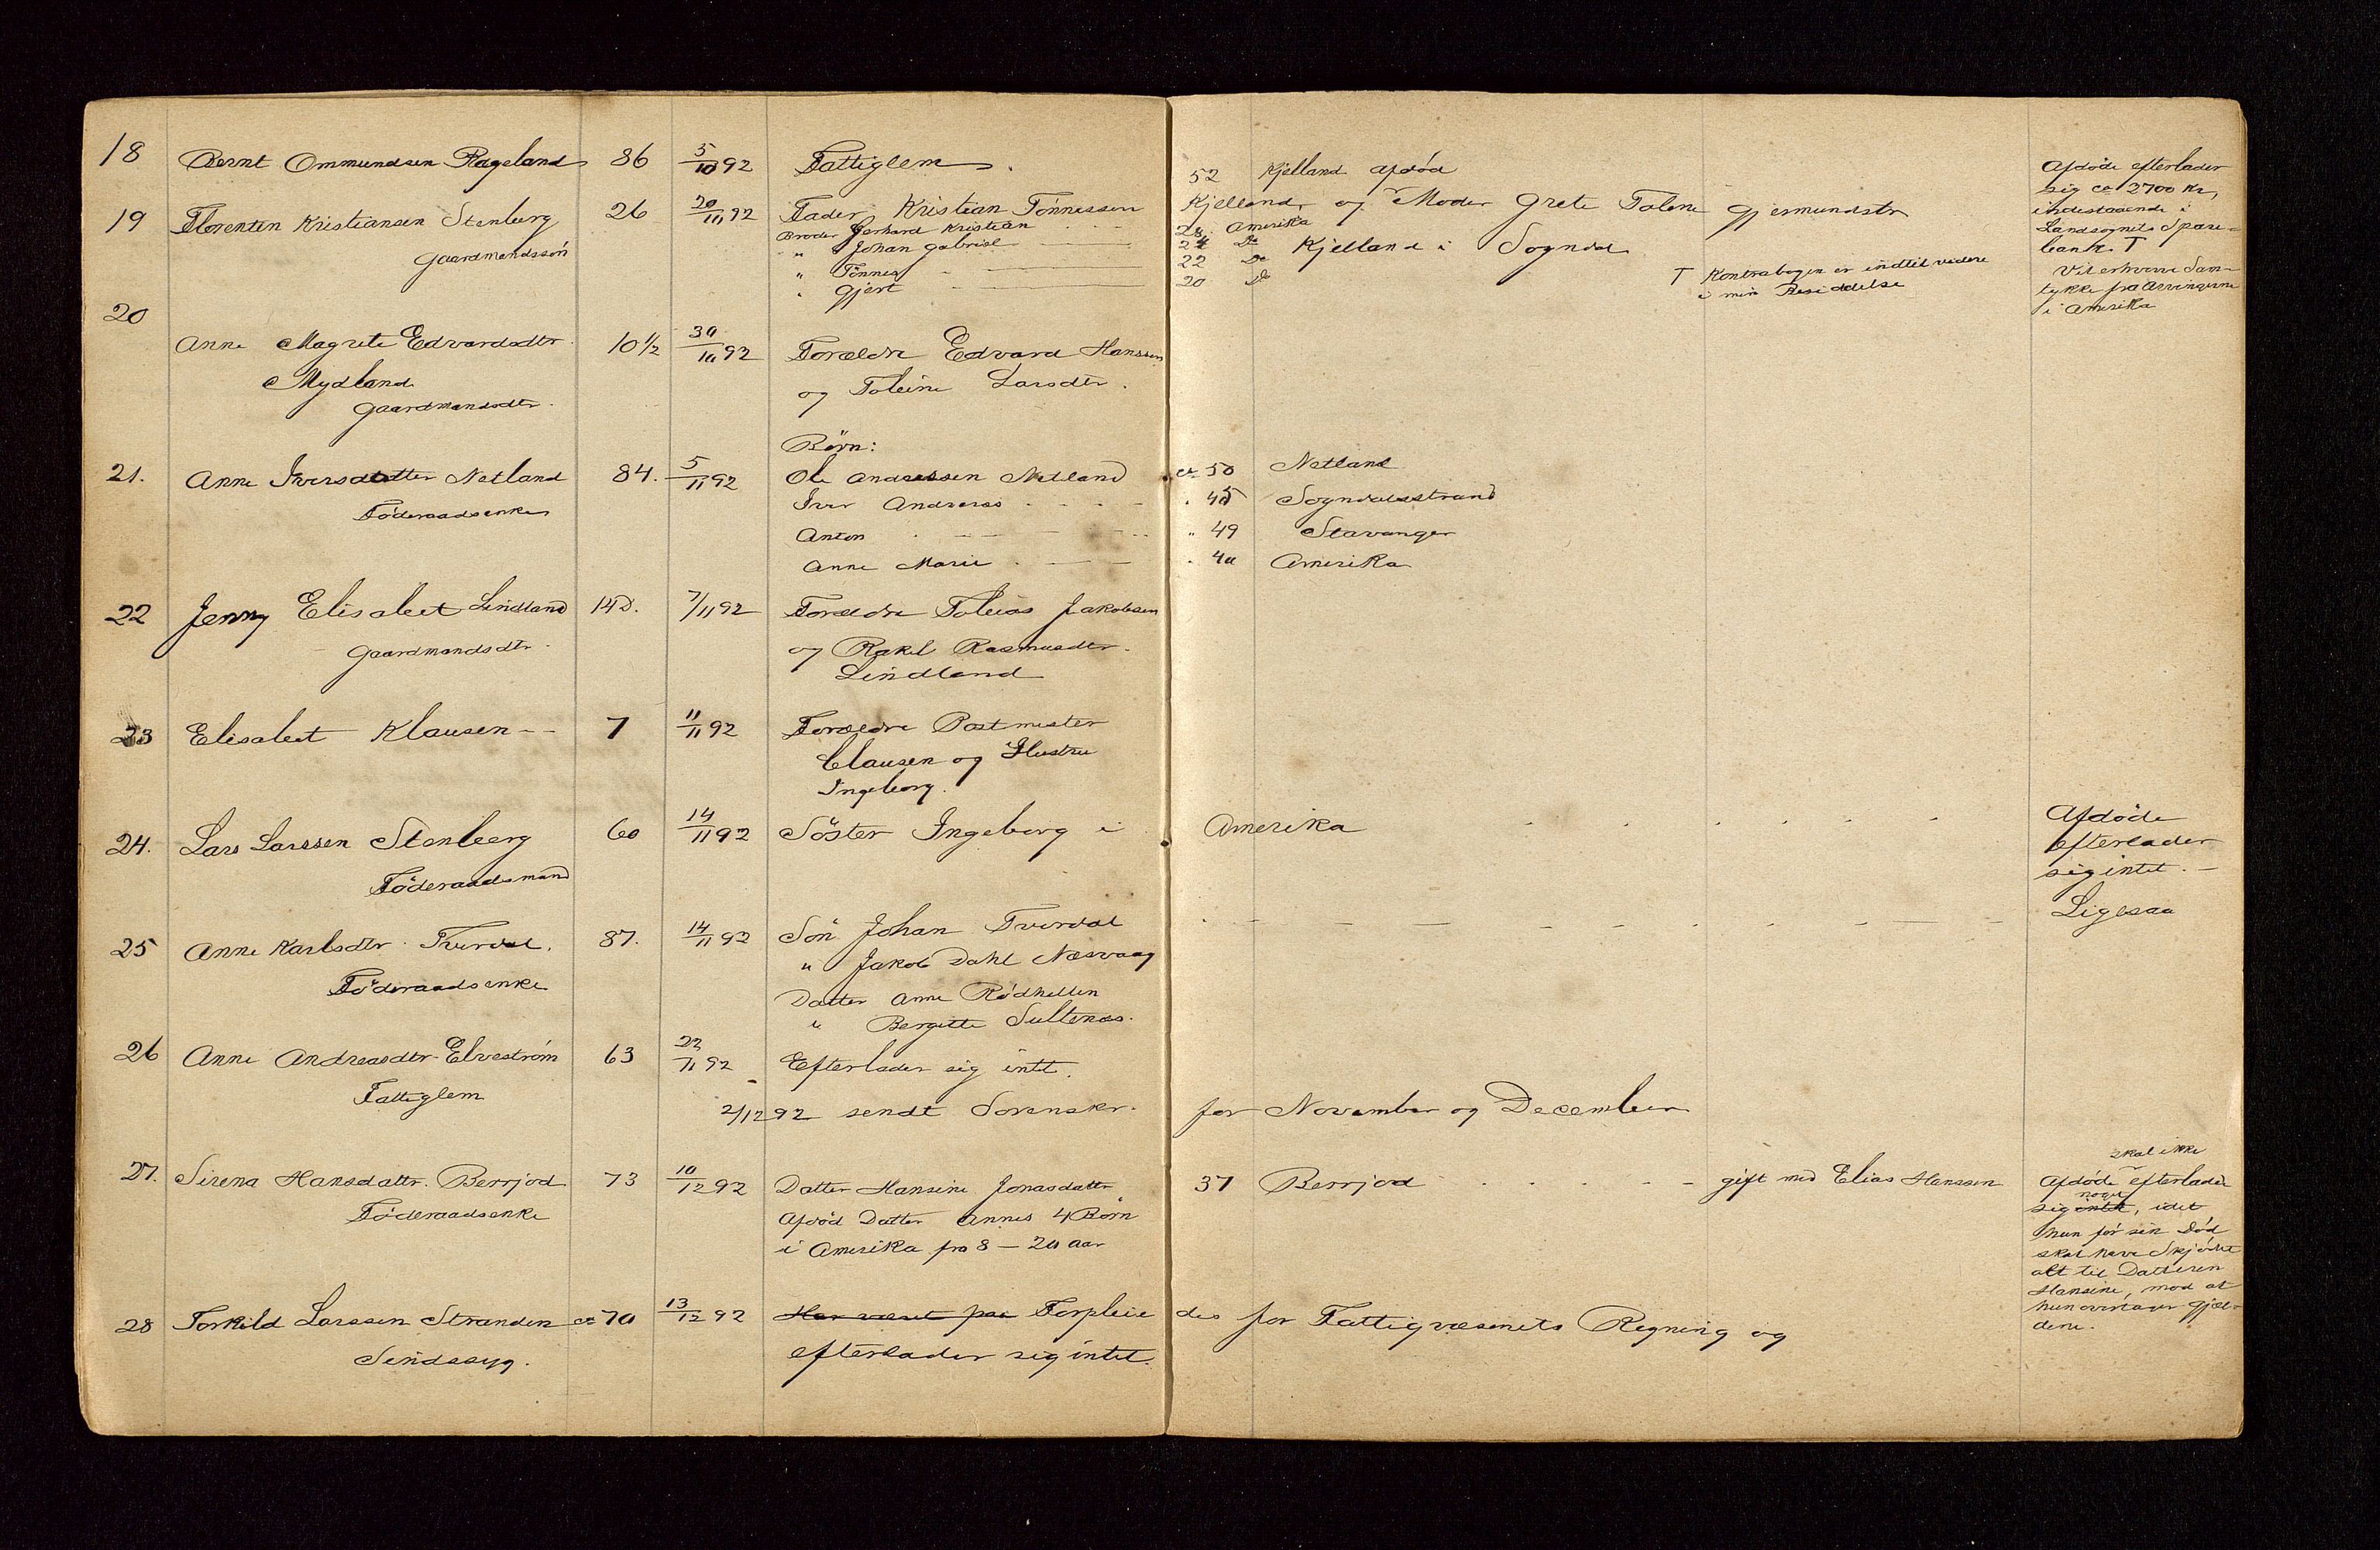 18 Bernt Ommundsen Rageland 86 5/10 92 Fattiglem.
19 Florentin Kristiansen Stenberg 26 20/11 92 Fader Kristian Tönnessen 52 Kjelland afdød
Gaardmandssön
Kjelland, og Moder Grete Tolene Gjermundstr
Broder Gerhard Kristian 28 Amerika
" Johan Gabriel 24 Do Kjelland i Sogndal
" Tönnes 22 Do
" Gjert 20 Do
T Kontrabogen er indtil videre
i min Besiddelse
Afdöde efterlader
sig ca 2700 Kr,
indestaaende i
Landsognets Spare-
bank. T
Vil erhverve Sam-
tykke fra Arvingerne
i Amerika
20
Anne Magrete Edvardsdtr 10 1/2 30/10 92 Forældre Edvard Hanssen
Mydland og Tolline Larsdtr.
Gaardmandsdtr.
Börn:
21. Anne Iversdatter Netland 84. 5/11 92 Ole Andreassen Netland ca 50 Netland
Föderaadsenke Iver Andreas - - - " 45 Sogndalsstrand
Anton - - - " 49 Stavanger
Anne Marie - - - " 40 Amerika
22 Jenny Elisabet Lindland 14 D. 7/11 92 Forældre Tobias Jakobsen
Gaardmandsdtr. og Rakel Rasmusdtr.
Lindland
23 Elisabet Klausen - - 7 11/11 92 Forældre Postmester
Clausen og Hustru
Ingeborg.
24. Lars Larssen Stenberg 60 14/11 92 Söster Ingeborg i Amerika - - - Afdöde
Föderaadsmand efterlader
sig intet. -
25 Anne Karlsdtr Tverdal. 87. 14/11 92 Sön Johan Tverdal - - - Ligesaa
Föderaadsenke " Jakob Dahl Næsvaag
Datter Anne Rødhellen
" Bergitte Sultenæs.
26 Anne Andreasdtr Elvestrøm 63 22/11 92 Efterlader sig intet.
Fattiglem
2/12 92 sendt Sorenskr. for November og December
27. Sirena Hansdattr. Berrjod 73 10/12 92 Datter Hansine Jonasdattr 37 Berrjod - - - gift med Elias Hanssen
Föderaadsenke Afdöd Datter Annes 4 Børn
i Amerika fra 8 - 20 Aar
skal ikke
Afdöde efterlade
noget
sig intet, idet
hun för sin Död
skal have Skjödet
alt til Datteren
Hansine, mod at
hun overtager Gjæl-
dene.
28 Torkild Larssen Stranden ca 70 13/12 92 Har været paa Forpleiedes for Fattigvæsenets Regning og
Sindssyg. efterlader sig intet.